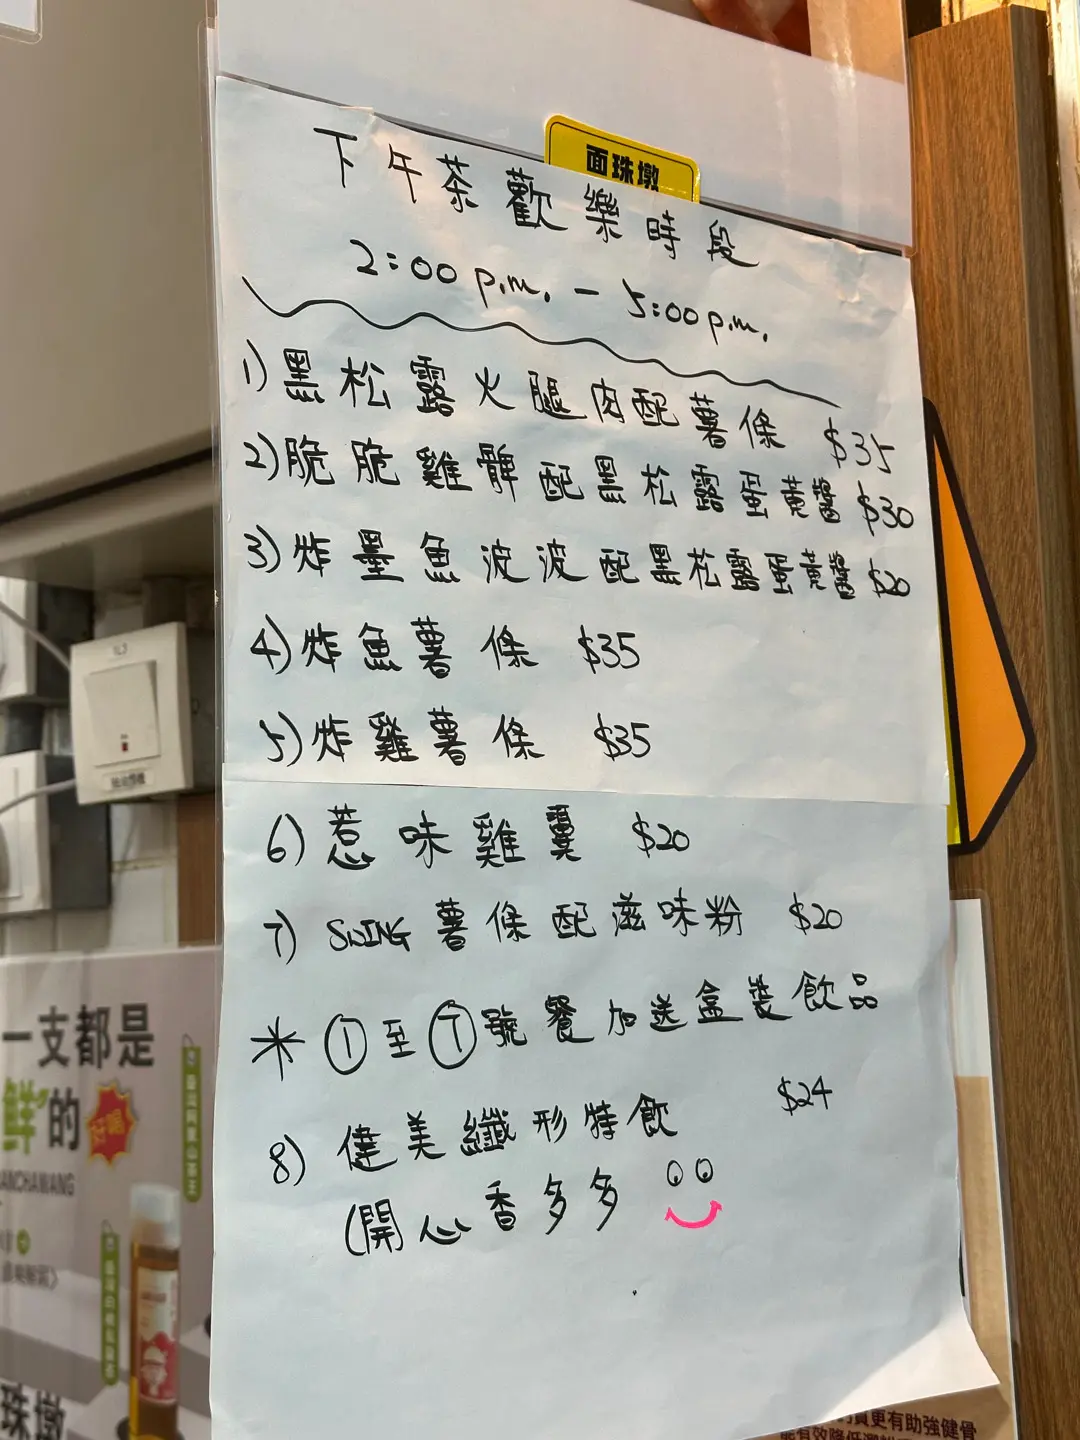 面珠墩
下午茶歡樂時段
2:00 p.m. - 5:00 p.m.
1) 黑松露火腿肉配薯條 $35
2) 脆脆雞髀配黑松露蛋黃醬 $30
3) 炸墨魚波波配黑松露蛋黃醬 $20
4) 炸魚薯條 $35
5) 炸雞薯條 $35
6) 惹味雞翼 $20
7) SWING 薯條配滋味粉 $20
* ①至⑦號餐加送盒裝飲品
8) 健美纖形特飲 $24
(開心香多多
一支都是
鮮的
好喝
珠墩
更有助強健骨